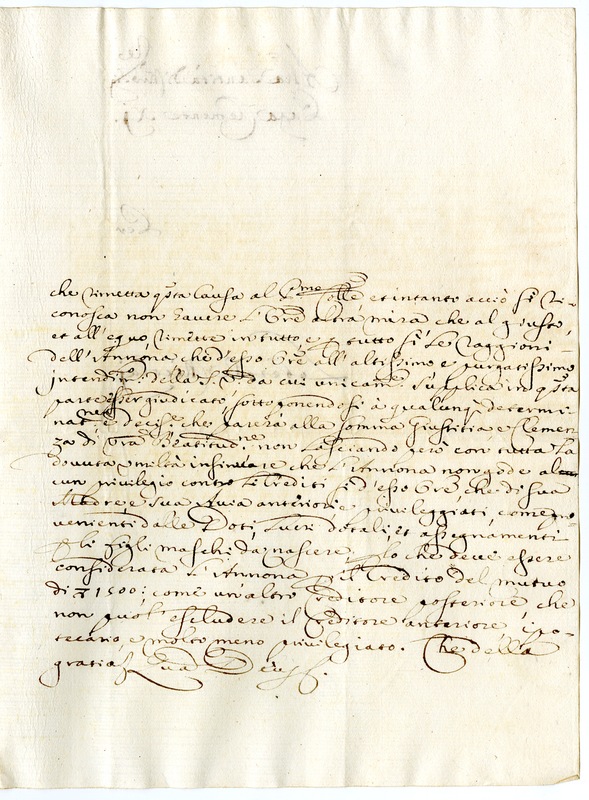 che rimetta q̃sta Causa al et intanto acciò si ri-
conosca non havere l'Ore altra mira che al giusto,
et all'equo, rimette in tutto e p tutto si le raggioni
dell'Annona che d'esso Ore all'altissimo e purgatissimo
intendim.to della S.V. da cui unicam.te supplica in q̃sta
parte esser giudicato, sottoponendosi à qualunq; determi-
nat.ne e decis.ne che parerà alla somma Giustitia e Clemen-
za di Vra Beatitud.ne non lasciando però con tutta la
dovuta umiltà insinuare che l'Annona non gode al-
cun privilegio contro li Crediti si d'esso Ore che di sua
Madre e sua anteriori e privileggiati, come pro-
venienti dalle Doti, lucri dotali, et assegnamenti
p li figli maschi da nascere, p lo che deve essere
considerata l'Annona p il Credito del mutuo
di 1500: come un altro Creditore posteriore che
non puol escludere il Creditore anteriore, ipo-
tecario, e molto meno privilegiato. Che della
gratia Quam Deus